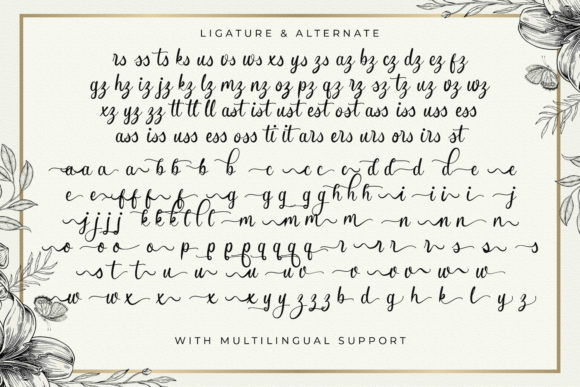 LIGATURE & ALTERNATE
rs ss ts ks us os ws xs ys zs az bz cz dz ez fz
gz hz iz jz kz lz mz nz oz pz qz rz sz tz uz vz wz
xz yz zz tt tt ll ast ist ust est ost ass iss uss ess
ass iss uss ess oss ti it ars ers urs ors irs st
a a a a b b b b c c c c d d d d e e
e e f f f f g g g g h h h i i i i j
j j j j k k k l l l m m m m n n n n
o o o o p p p p q q q q r r r r s s s s
s t t u u u u v v v v w w
w w x x x x x y y y z z z b d g h k l y z
WITH MULTILINGUAL SUPPORT